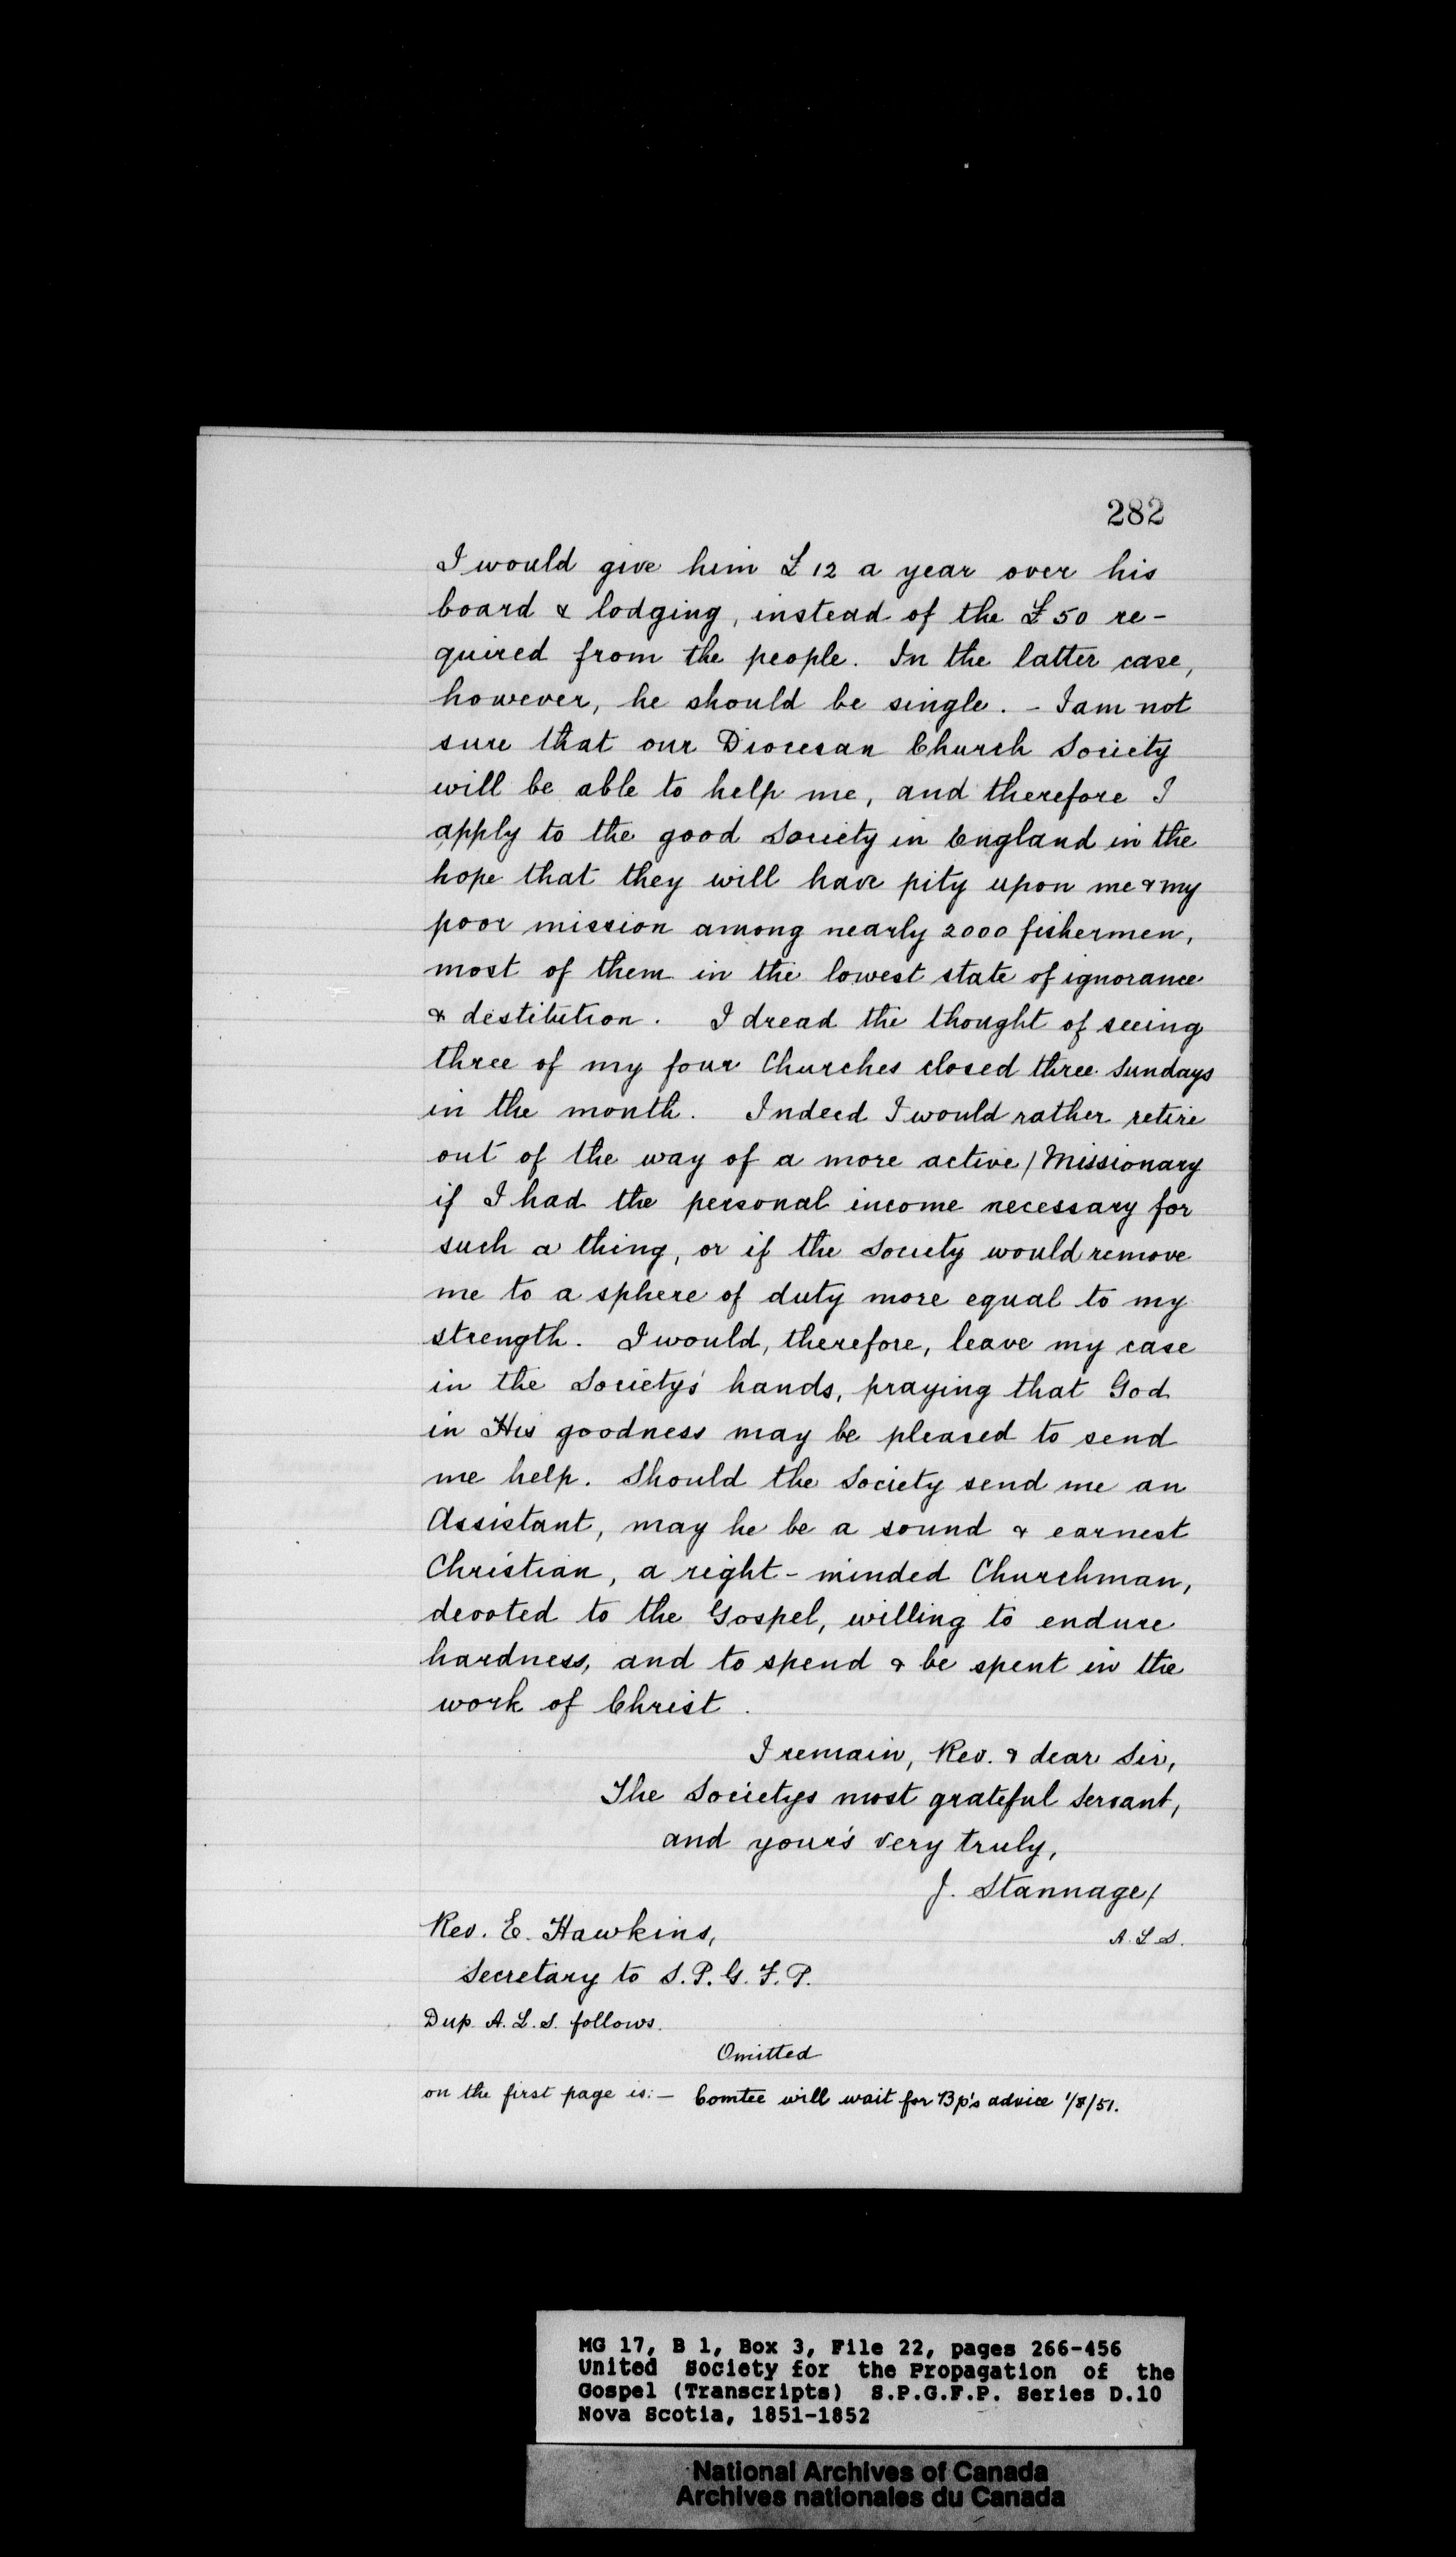 282
I would give him £12 a year over his
board & lodging, instead of the £50 re-
quired from the people. In the latter case,
however, he should be single. - I am not
sure that our Diocesan Church Society
will be able to help me, and therefore I
apply to the good Society in England in the
hope that they will have pity upon me & my
poor mission among nearly 2000 fishermen,
most of them in the lowest state of ignorance
& destitution. I dread the thought of seeing
three of my four Churches closed three Sundays
in the month. Indeed I would rather retire
out of the way of a more active / Missionary
if I had the personal income necessary for
such a thing, or if the Society would remove
me to a sphere of duty more equal to my
strength. I would, therefore, leave my case
in the Society's hands, praying that God
in His goodness may be pleased to send
me help. Should the Society send me an
Assistant, may he be a sound & earnest
Christian, a right-minded Churchman,
devoted to the Gospel, willing to endure
hardness, and to spend & be spent in the
work of Christ.
I remain, Rev. & dear Sir,
The Societys most grateful Servant,
and your's very truly,
J. Stannage/
Rev. E. Hawkins,
A.L.S.
Secretary to S.P.G.F.P.
Dup. A.L.S. follows.
Omitted
on the first page is:- Comtee will wait for Bp's advice 1/8/51.
MG 17, B 1, Box 3, File 22, pages 266-456
United Society for the Propagation of the
Gospel (Transcripts) S.P.G.F.P. Series D.10
Nova Scotia, 1851-1852
National Archives of Canada
Archives nationales du Canada